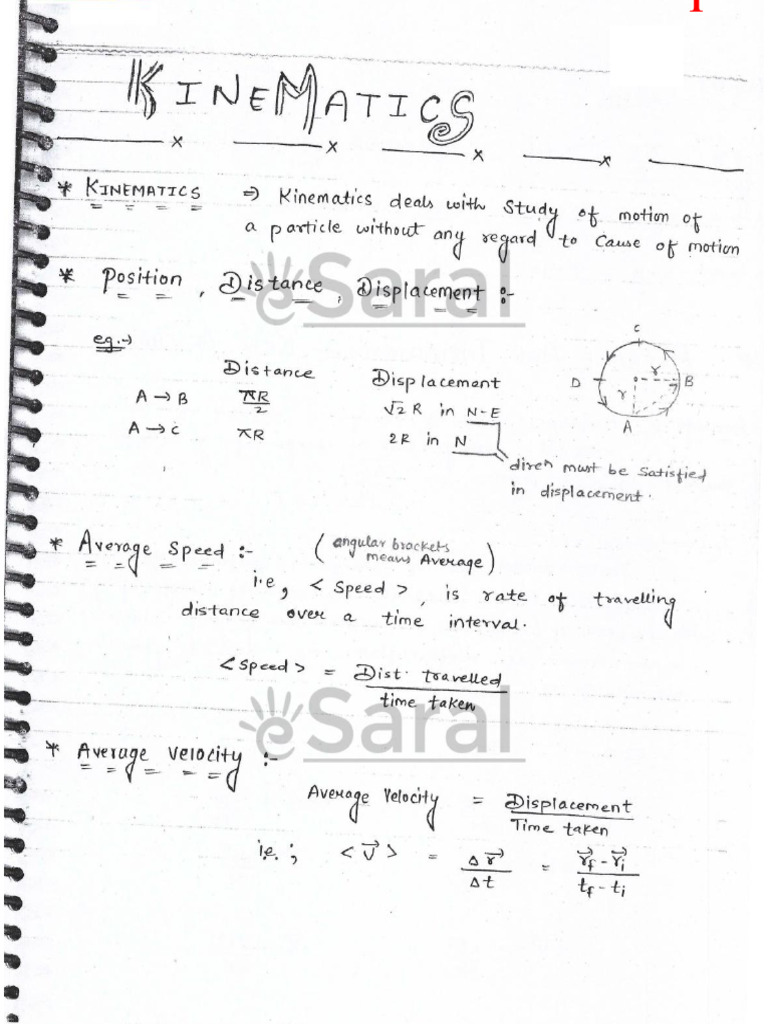 1
KINEMATICS
* KINEMATICS ⇒ Kinematics deals with study of motion of
a particle without any regard to cause of motion
eSaral
* Position, Distance, Displacement :-
eg.→
Distance Displacement
A → B πR/2 √2 R in N-E
A → C πR 2R in N
dirⁿ must be satisfied
in displacement.
C
D r B
r
A
* Average Speed :- (angular brackets
means Average)
i.e, < Speed >, is rate of travelling
distance over a time interval.
< Speed > = Dist. travelled
time taken
eSaral
* Average velocity :-
Average Velocity = Displacement
Time taken
i.e.; < v⃗ > = Δr⃗/Δt = (r⃗f - r⃗i)/(tf - ti)